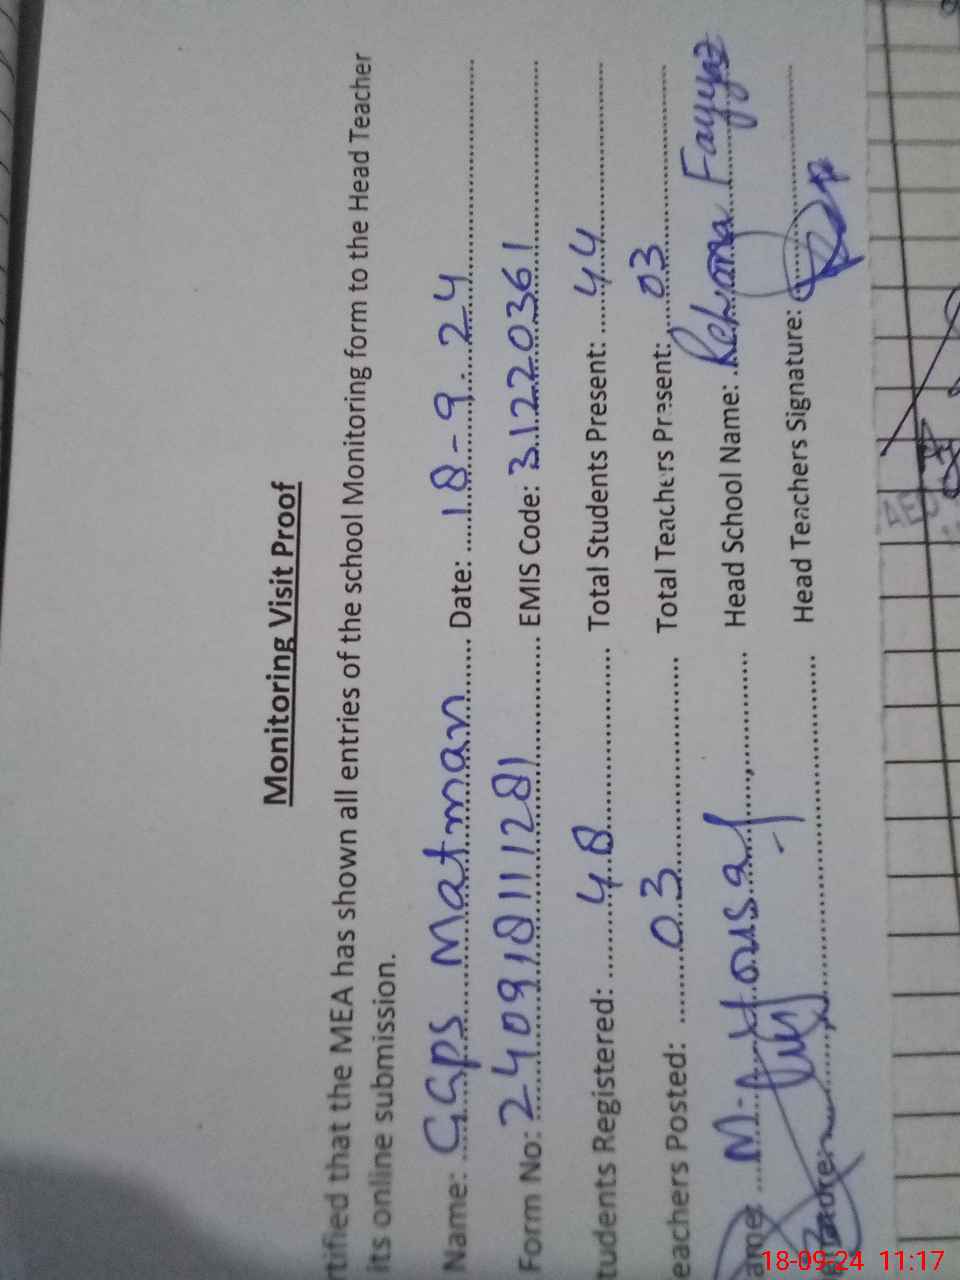 Monitoring Visit Proof
rtified that the MEA has shown all entries of the school Monitoring form to the Head Teacher
its online submission.
Name: GGPS Matman Date: 18-9.24
Form No: 24091811128 1 EMIS Code: 31220361
tudents Registered: 48 Total Students Present: 44
eachers Posted: 03 Total Teachers Present: 03
ame: M. Yousaf Head School Name: Rehana Fayyaz
Head Teachers Signature:
18-09-24 11:17